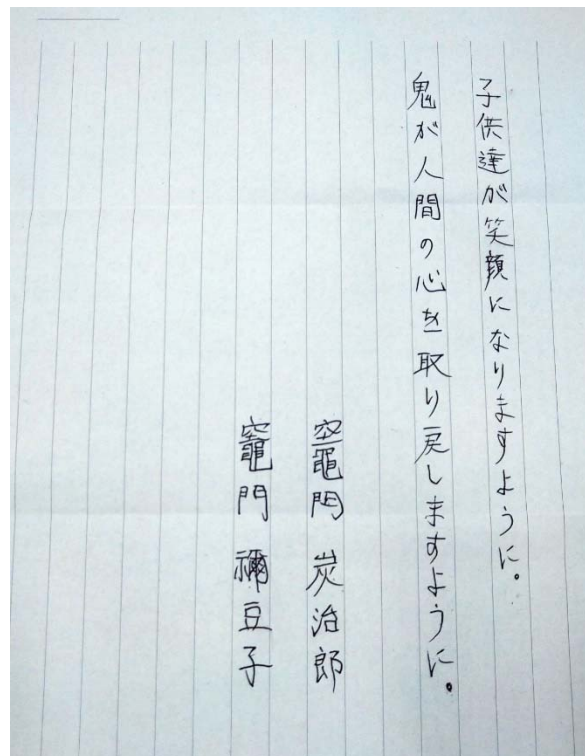 子供達が笑顔になりますように。
鬼が人間の心を取り戻しますように。
竈門 炭治郎
竈門 禰豆子